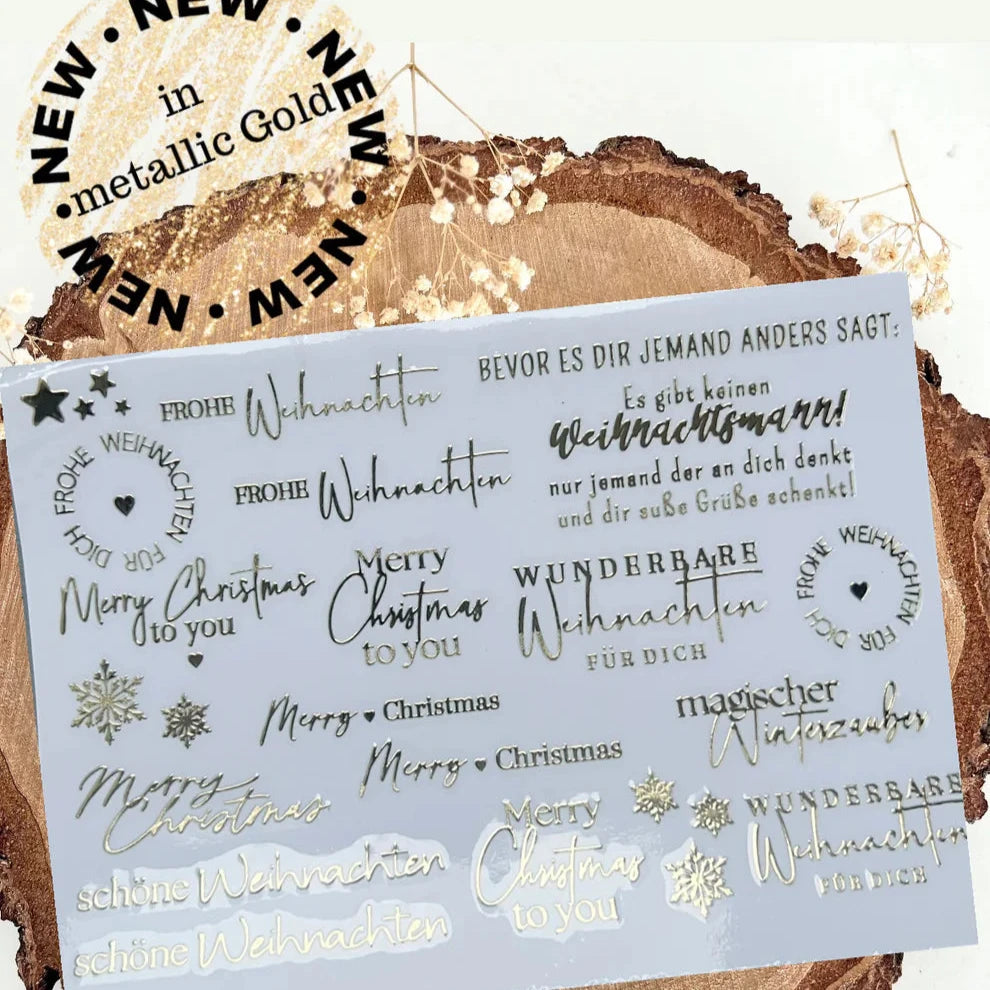 NEW • NEW • NEW • NEW • NEW • NEW • NEW •
in
metallic Gold
BEVOR ES DIR JEMAND ANDERS SAGT:
Es gibt keinen
Weihnachtsmann!
nur jemand der an dich denkt
und dir süße Grüße schenkt!
FROHE Weihnachten
FROHE WEIHNACHTEN FÜR DICH
FROHE Weihnachten
Merry Christmas
to you
Merry
Christmas
to you
WUNDERBARE
Weihnachten
FÜR DICH
FROHE WEIHNACHTEN FÜR DICH
Merry ♥ Christmas
magischer
Winterzauber
Merry ♥ Christmas
Merry
Christmas
Merry
Christmas
to you
WUNDERBARE
Weihnachten
FÜR DICH
schöne Weihnachten
schöne Weihnachten